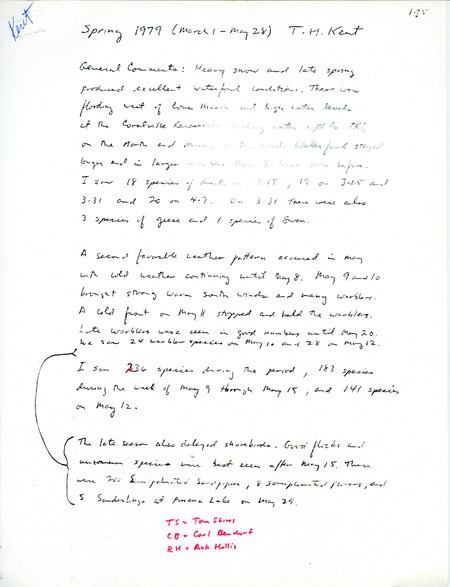 Kent
1-25
Spring 1979 (March 1 - May 28) T.H. Kent
General Comments: Heavy snow and late spring
produced excellent waterfowl conditions. There was
flooding west of Cone Marsh and high water levels
at the Coralville Reservoir water up to
on the North and on the West. Waterfowl stayed
longer and in larger than I have seen before.
I saw 18 species of ducks on 3-18, 19 on 3-25 and
3-31 and 20 on 4-7. On 3-31 there were also
3 species of geese and 1 species of Swan.
A second favorable weather pattern occured in May
with cold weather continuing until May 8. May 9 and 10
brought strong warm South winds and many warblers.
A cold front on May 11 stopped and held the warblers.
Late warblers were seen in good numbers until May 20.
We saw 24 warbler species on May 10 and 28 on May 12.
I saw 236 species during the period, 183 species
during the week of May 9 through May 15, and 141 species
on May 12.
The late season also delayed shorebirds. Good flocks and
uncommon species were best seen after May 15. There
were 200 Semipalmated Sandpipers, 8 semipalmated plovers, and
5 Sanderlings at Amana Lake on May 29.
TS = Tom Shires
CB = Carl Bendorf
RH = Rick Hollis